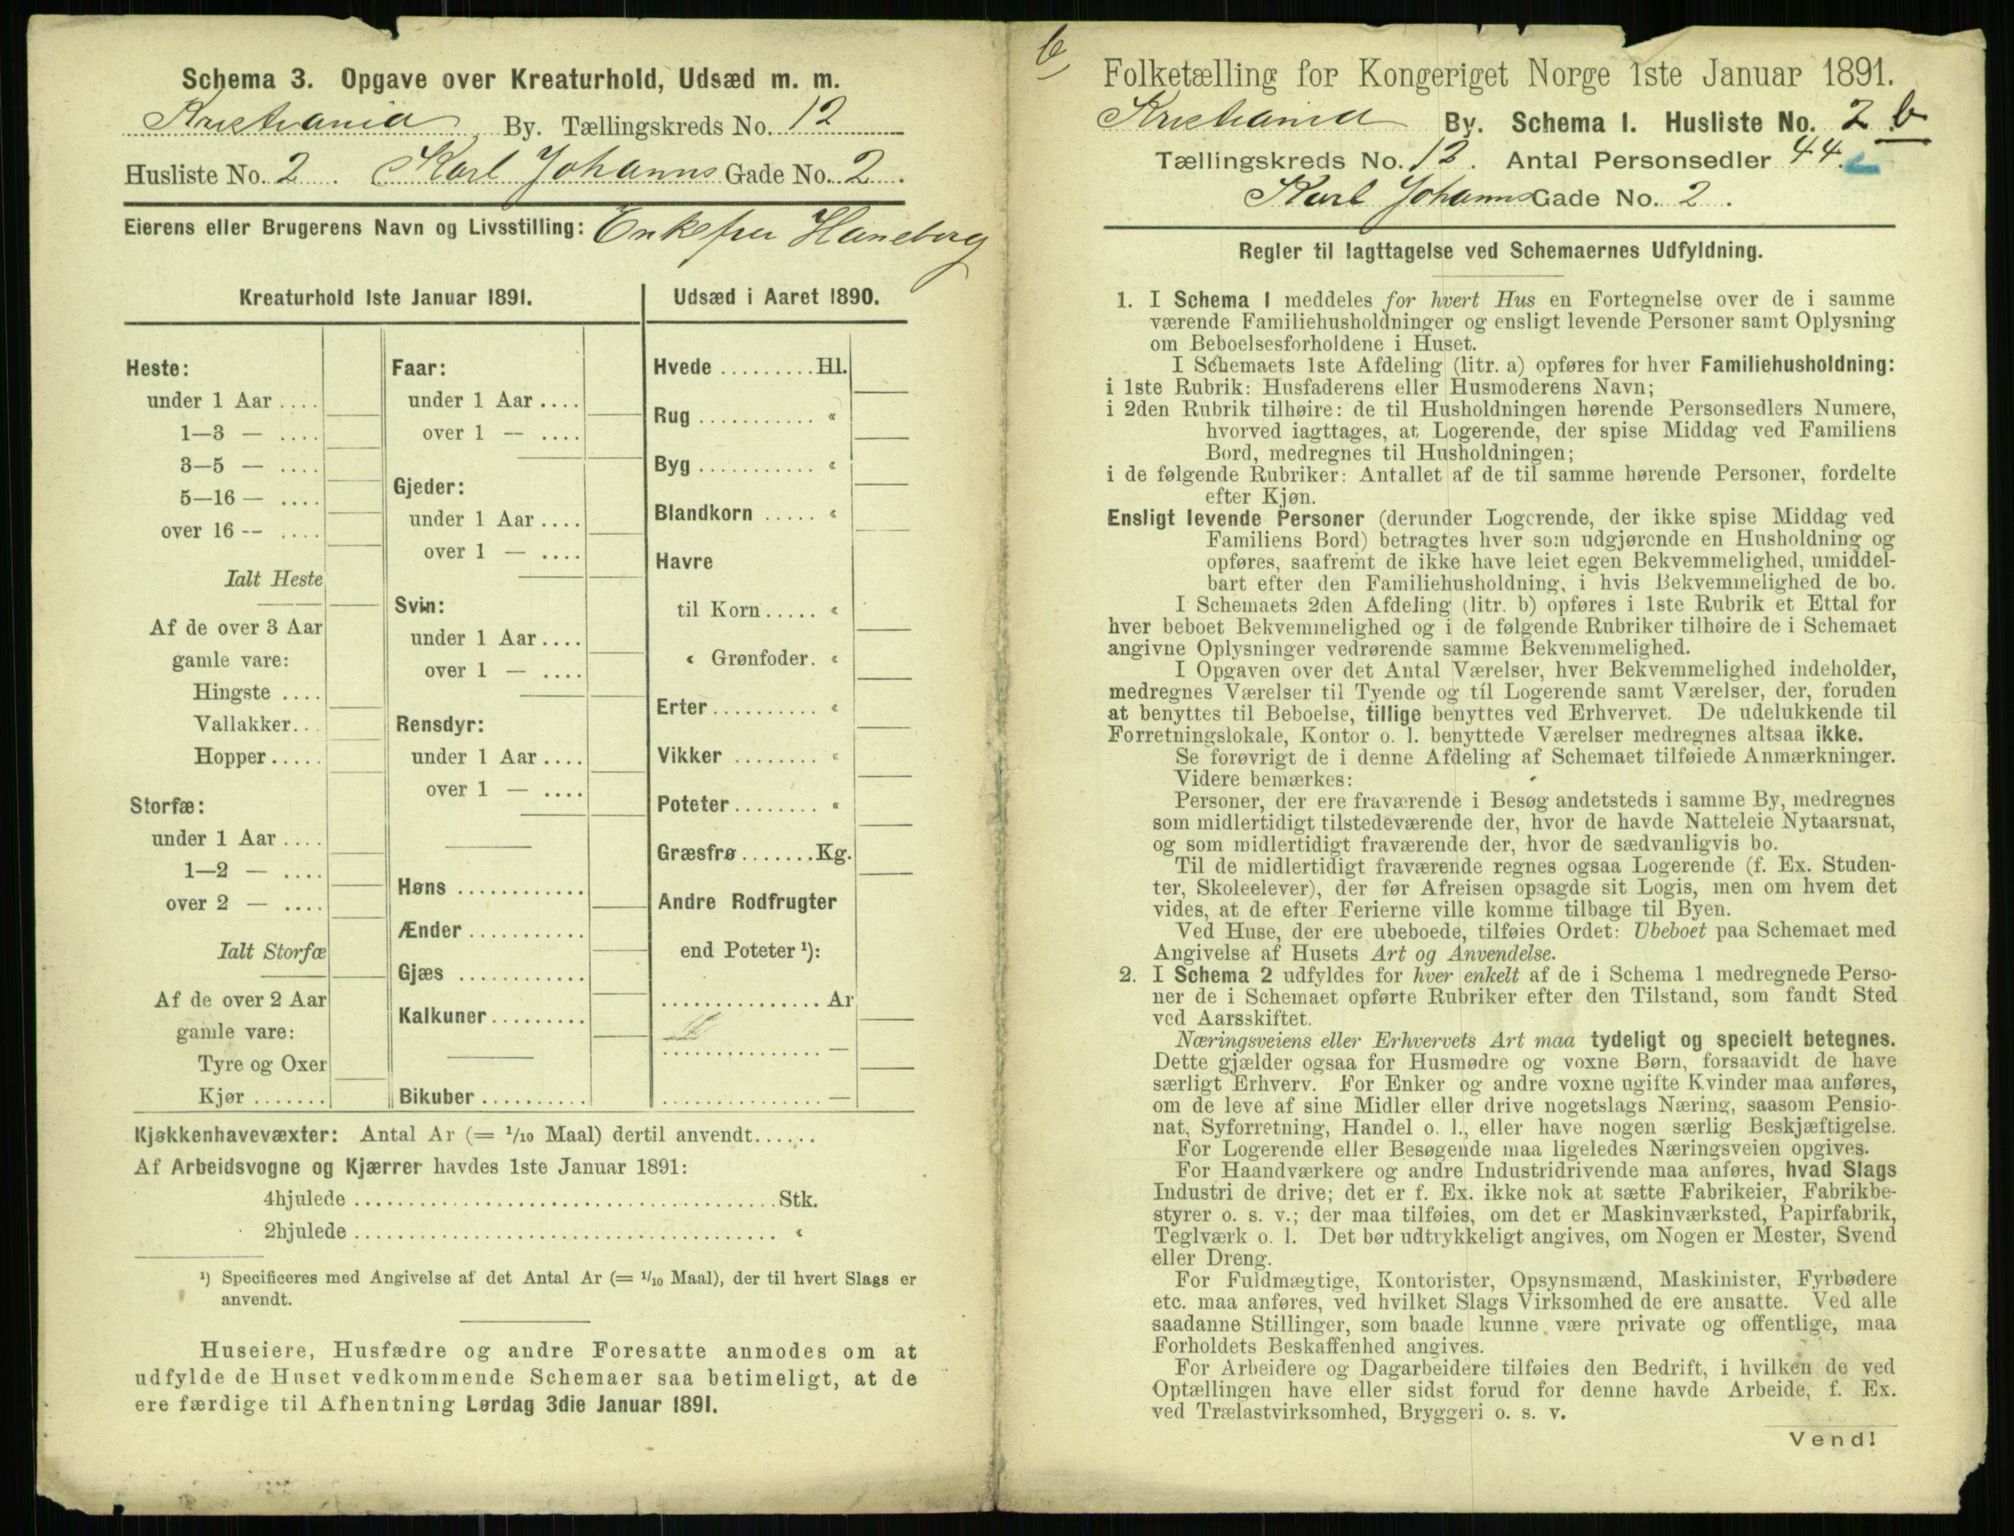 Schema 3. Opgave over Kreaturhold, Udsæd m. m.
Kristiania By. Tællingskreds No. 12
Husliste No. 2. Karl Johanns Gade No. 2.
Eierens eller Brugerens Navn og Livsstilling: Enkefru Haneborg
Kreaturhold 1ste Januar 1891.
Heste:
under 1 Aar ....
1—3 — ....
3—5 — ....
5—16 — ....
over 16 -- ....
Ialt Heste
Af de over 3 Aar
gamle vare:
Hingste ....
Vallakker...
Hopper.....
Storfæ:
under 1 Aar ....
1—2 — ....
over 2 — ....
Ialt Storfæ
Af de over 2 Aar
gamle vare:
Tyre og Oxer
Kjør .......
Faar:
under 1 Aar ....
over 1 — ....
Gjeder:
under 1 Aar ....
over 1 — ....
Svin:
under 1 Aar ....
over 1 — ....
Rensdyr:
under 1 Aar ....
over 1 — ....
Høns ............
Ænder ...........
Gjæs ............
Kalkuner.........
Bikuber ..........
Udsæd i Aaret 1890.
Hvede .........Hl.
Rug ........... «
Byg ........... «
Blandkorn ..... «
Havre
til Korn..... «
« Grønfoder. «
Erter.......... «
Vikker ........ «
Poteter........ «
Græsfrø.......Kg.
Andre Rodfrugter
end Poteter ¹):
...............Ar
............... —
............... —
Kjøkkenhavevæxter: Antal Ar (= 1/10 Maal) dertil anvendt......
Af Arbeidsvogne og Kjærrer havdes 1ste Januar 1891:
4hjulede ........................................Stk.
2hjulede ........................................ «
¹) Specificeres med Angivelse af det Antal Ar (= 1/10 Maal), der til hvert Slags er
anvendt.
Huseiere, Husfædre og andre Foresatte anmodes om at
udfylde de Huset vedkommende Schemaer saa betimeligt, at de
ere færdige til Afhentning Lørdag 3die Januar 1891.
Folketælling for Kongeriget Norge 1ste Januar 1891.
Kristiania By. Schema I. Husliste No. 2 b
Tællingskreds No. 12. Antal Personsedler 44.
Karl Johanns Gade No. 2.
Regler til Iagttagelse ved Schemaernes Udfyldning.
1. I Schema I meddeles for hvert Hus en Fortegnelse over de i samme
værende Familiehusholdninger og ensligt levende Personer samt Oplysning
om Beboelsesforholdene i Huset.
I Schemaets 1ste Afdeling (litr. a) opføres for hver Familiehusholdning:
i 1ste Rubrik: Husfaderens eller Husmoderens Navn;
i 2den Rubrik tilhøire: de til Husholdningen hørende Personsedlers Numere,
hvorved iagttages, at Logerende, der spise Middag ved Familiens
Bord, medregnes til Husholdningen;
i de følgende Rubriker: Antallet af de til samme hørende Personer, fordelte
efter Kjøn.
Ensligt levende Personer (derunder Logerende, der ikke spise Middag ved
Familiens Bord) betragtes hver som udgjørende en Husholdning og
opføres, saafremt de ikke have leiet egen Bekvemmelighed, umiddel-
bart efter den Familiehusholdning, i hvis Bekvemmelighed de bo.
I Schemaets 2den Afdeling (litr. b) opføres i 1ste Rubrik et Ettal for
hver beboet Bekvemmelighed og i de følgende Rubriker tilhøire de i Schemaet
angivne Oplysninger vedrørende samme Bekvemmelighed.
I Opgaven over det Antal Værelser, hver Bekvemmelighed indeholder,
medregnes Værelser til Tyende og til Logerende samt Værelser, der, foruden
at benyttes til Beboelse, tillige benyttes ved Erhvervet. De udelukkende til
Forretningslokale, Kontor o. l. benyttede Værelser medregnes altsaa ikke.
Se forøvrigt de i denne Afdeling af Schemaet tilføiede Anmærkninger.
Videre bemærkes:
Personer, der ere fraværende i Besøg andetsteds i samme By, medregnes
som midlertidigt tilstedeværende der, hvor de havde Natteleie Nytaarsnat,
og som midlertidigt fraværende der, hvor de sædvanligvis bo.
Til de midlertidigt fraværende regnes ogsaa Logerende (f. Ex. Studen-
ter, Skoleelever), der før Afreisen opsagde sit Logis, men om hvem det
vides, at de efter Ferierne ville komme tilbage til Byen.
Ved Huse, der ere ubeboede, tilføies Ordet: Ubeboet paa Schemaet med
Angivelse af Husets Art og Anvendelse.
2. I Schema 2 udfyldes for hver enkelt af de i Schema 1 medregnede Perso-
ner de i Schemaet opførte Rubriker efter den Tilstand, som fandt Sted
ved Aarsskiftet.
Næringsveiens eller Erhvervets Art maa tydeligt og specielt betegnes.
Dette gjælder ogsaa for Husmødre og voxne Børn, forsaavidt de have
særligt Erhverv. For Enker og andre voxne ugifte Kvinder maa anføres,
om de leve af sine Midler eller drive nogetslags Næring, saasom Pensio-
nat, Syforretning, Handel o. l., eller have nogen særlig Beskjæftigelse.
For Logerende eller Besøgende maa ligeledes Næringsveien opgives.
For Haandværkere og andre Industridrivende maa anføres, hvad Slags
Industri de drive; det er f. Ex. ikke nok at sætte Fabrikeier, Fabrikbe-
styrer o. s. v.; der maa tilføies, om det er Maskinværksted, Papirfabrik,
Teglværk o. l. Det bør udtrykkeligt angives, om Nogen er Mester, Svend
eller Dreng.
For Fuldmægtige, Kontorister, Opsynsmænd, Maskinister, Fyrbødere
etc. maa anføres, ved hvilket Slags Virksomhed de ere ansatte. Ved alle
saadanne Stillinger, som baade kunne være private og offentlige, maa
Forholdets Beskaffenhed angives.
For Arbeidere og Dagarbeidere tilføies den Bedrift, i hvilken de ved
Optællingen have eller sidst forud for denne havde Arbeide, f. Ex.
ved Trælastvirksomhed, Bryggeri o. s. v.
Vend!